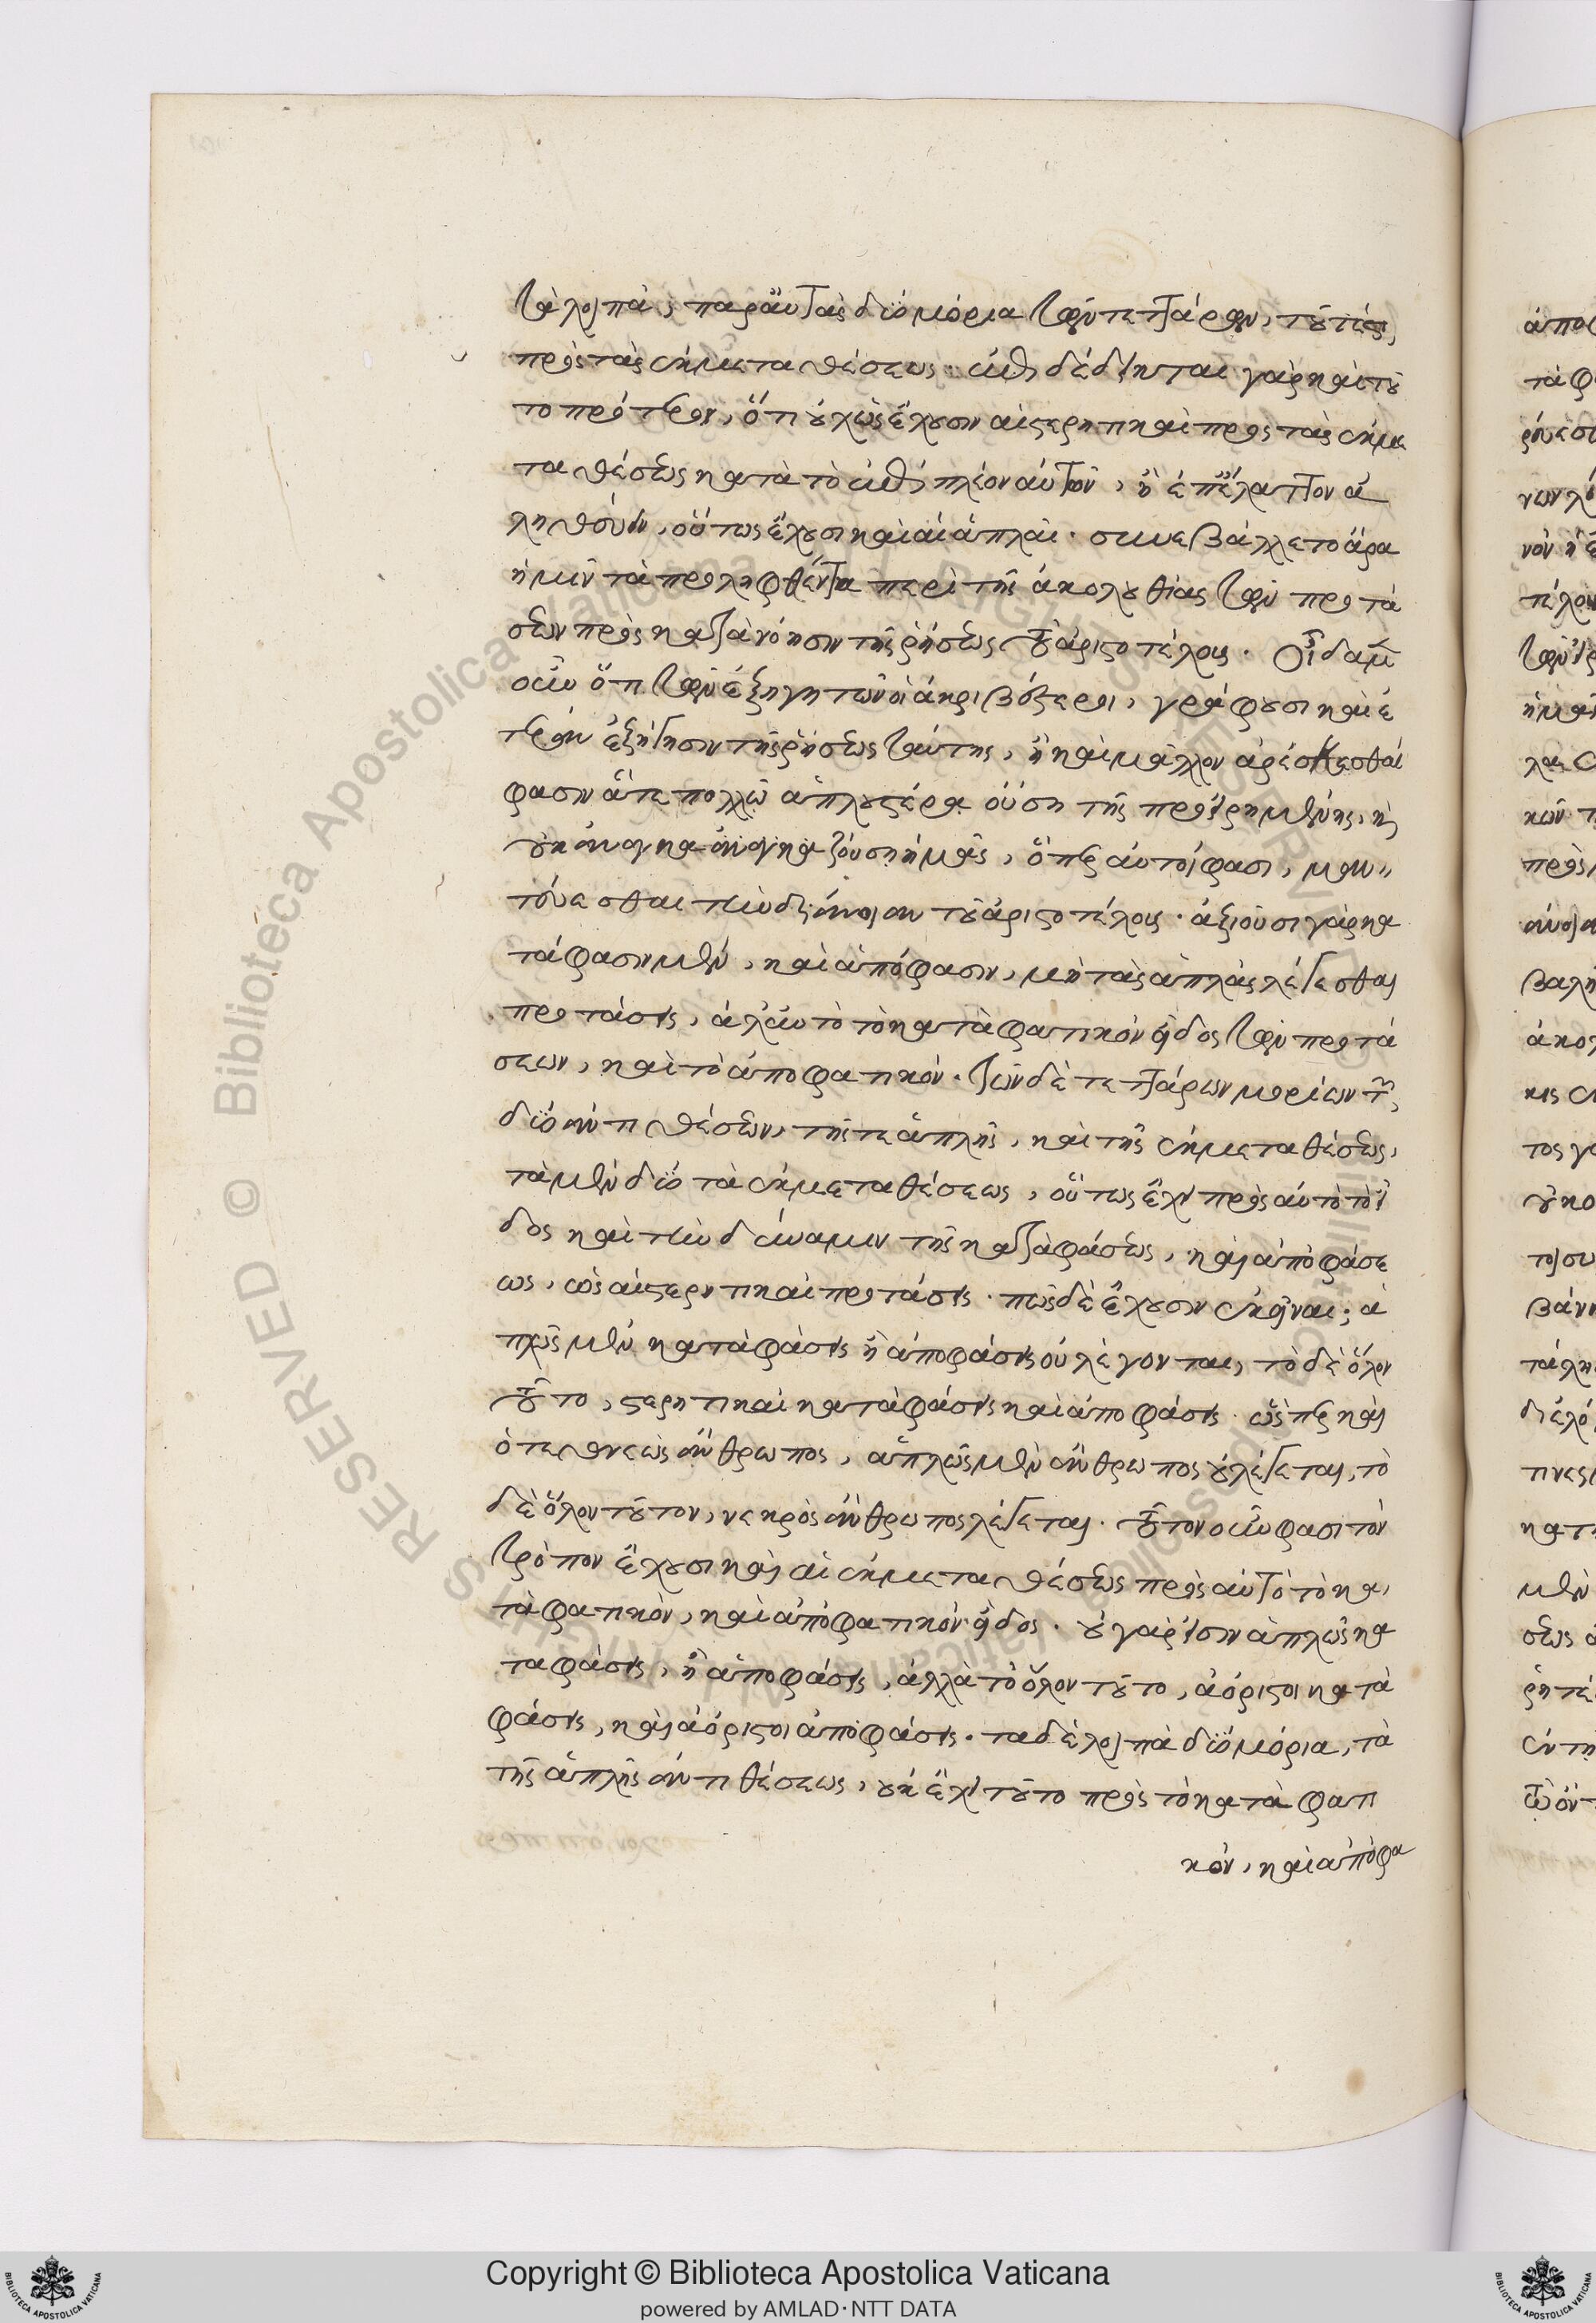 τὰ λοιπὰ, παρὰ ταύτας δύο μόρια τῶν τεττάρων, τουτέστι
πρὸς τὰς ἐκ μεταθέσεως· δέδεικται γὰρ καὶ τοῦ
το πρότερον, ὅτι οὐχ ὡς ἔχουσιν αἱ στερητικαὶ πρὸς τὰς ἐκ με
ταθέσεως κατὰ τὸ ἐπὶ πλέον αὐτῶν, ἢ ἐπ' ἔλαττον ἀ
ληθεύειν, οὕτως ἔχουσι καὶ αἱ ἁπλαῖ. συνεβάλλετο ἄρα
ἡμῖν τὰ προληφθέντα περὶ τῆς ἀκολουθίας τῶν προτά
σεων πρὸς κατανόησιν τῆς ῥήσεως τοῦ ἀριστοτέλους. Οἶδα μὲν
οὖν ὅτι τῶν ἐξηγητῶν οἱ ἀκριβέστεροι, γράφουσι καὶ ἑ
τέραν ἐξήγησιν τῆς ῥήσεως ταύτης, ᾗ καὶ μᾶλλον ἀρέσκεσθαί
φασιν ἅτε πολλῷ ἁπλουστέρᾳ οὔσῃ τῆς προειρημένης, καὶ
οὐκ ἀναγκαζούσῃ ἡμᾶς, ὅπερ αὐτοί φασι, μαν
τεύεσθαι τὴν διάνοιαν τοῦ ἀριστοτέλους. ἀξιοῦσι γὰρ κα
τάφασιν μὲν, καὶ ἀπόφασιν, μὴ τὰς ἁπλὰς λέγεσθαι
προτάσεις, ἀλλ' αὐτὸ τὸ καταφατικὸν εἶδος τῶν προτά
σεων, καὶ τὸ ἀποφατικόν. τῶν δὲ τεττάρων μορίων τῶν
δύο ἀντιθέσεων, τῆς τε ἁπλῆς, καὶ τῆς ἐκ μεταθέσεως,
τὰ μὲν δύο τὰ ἐκ μεταθέσεως, οὕτως ἔχει πρὸς αὐτὸ τὸ εἶ
δος καὶ τὴν δύναμιν τῆς καταφάσεως, καὶ ἀποφάσε
ως, ὡς αἱ στερητικαὶ προτάσεις. πῶς δὲ ἔχουσιν ἐκεῖναι; ἁ
πλῶς μὲν καταφάσεις ἢ ἀποφάσεις οὐ λέγονται, τὸ δὲ ὅλον
τοῦτο, στερητικαὶ καταφάσεις καὶ ἀποφάσεις. ὥσπερ καὶ
ὁ τεθνεὼς ἄνθρωπος, ἁπλῶς μὲν ἄνθρωπος οὐ λέγεται, τὸ
δὲ ὅλον τοῦτον, νεκρὸς ἄνθρωπος λέγεται. τοῦτον οὖν φασι τὸν
τρόπον ἔχουσι καὶ αἱ ἐκ μεταθέσεως πρὸς αὐτὸ τὸ κα
ταφατικὸν, καὶ ἀποφατικὸν εἶδος. οὐ γάρ εἰσιν ἁπλῶς κα
ταφάσεις, ἢ ἀποφάσεις, ἀλλὰ τὸ ὅλον τοῦτο, ἀόριστοι κατα
φάσεις, καὶ ἀόριστοι ἀποφάσεις. τὰ δὲ λοιπὰ δύο μόρια, τὰ
τῆς ἁπλῆς ἀντιθέσεως, οὐκ ἔχει τοῦτο πρὸς τὸ καταφατι
κὸν, καὶ ἀποφα
Copyright © Biblioteca Apostolica Vaticana
powered by AMLAD·NTT DATA